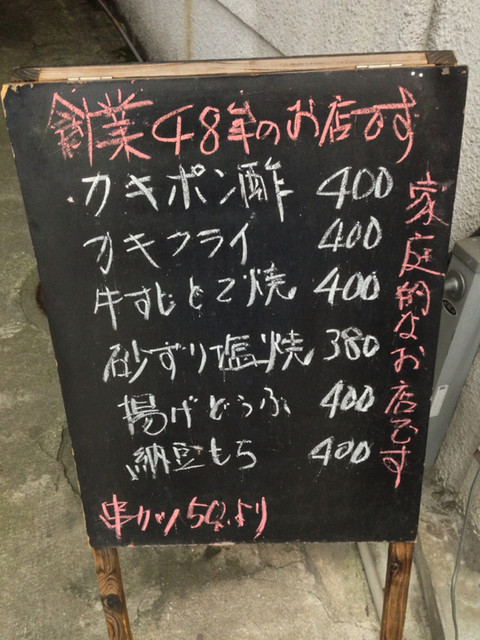 創業48年のお店です
カキポン酢 400
カキフライ 400
牛すじとこ焼 400
砂ずり塩焼 380
揚げどうふ 400
納豆もち 400
串カツ50より
家庭的なお店です